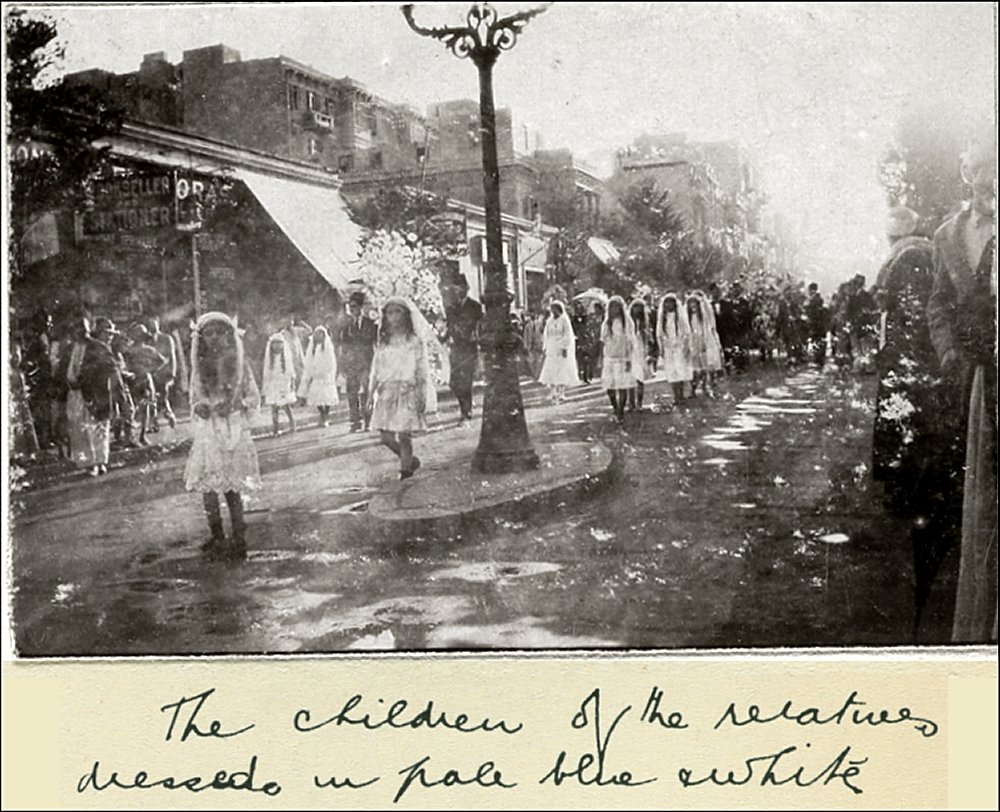 BOOKSELLER
STATIONER
The children of the relatives
dressed in pale blue & white